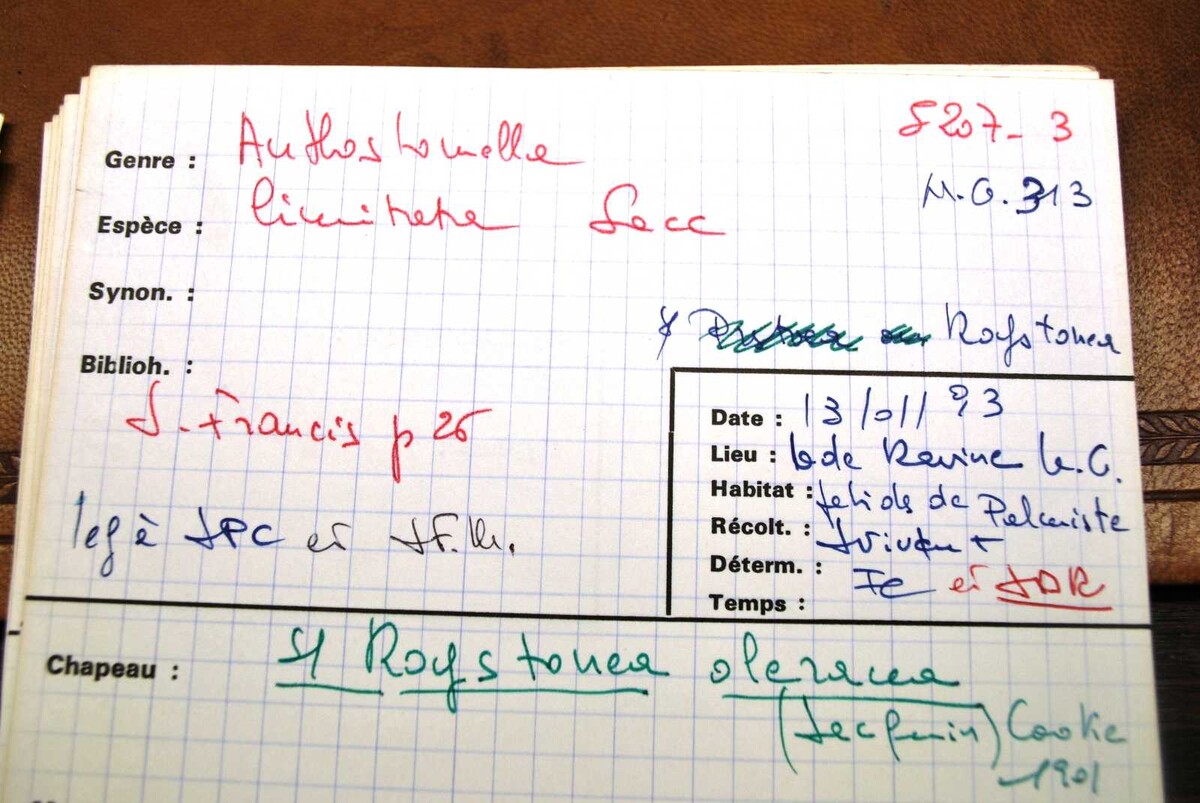 5207-3
Genre : Anthostomella
M.G. 313
Espèce : limitata Sacc
Synon. :
s/ Roystonea
Biblioh. :
S. Francis p 26
Date : 13/01/93
Lieu : Ravine
Habitat : pétiole de Palmiste
leg à JPC et J.F.M.
Récolt. : Vivant
Déterm. : FC et
Temps :
Chapeau : s/ Roystonea oleracea
(Jacquin) Cooke
1901